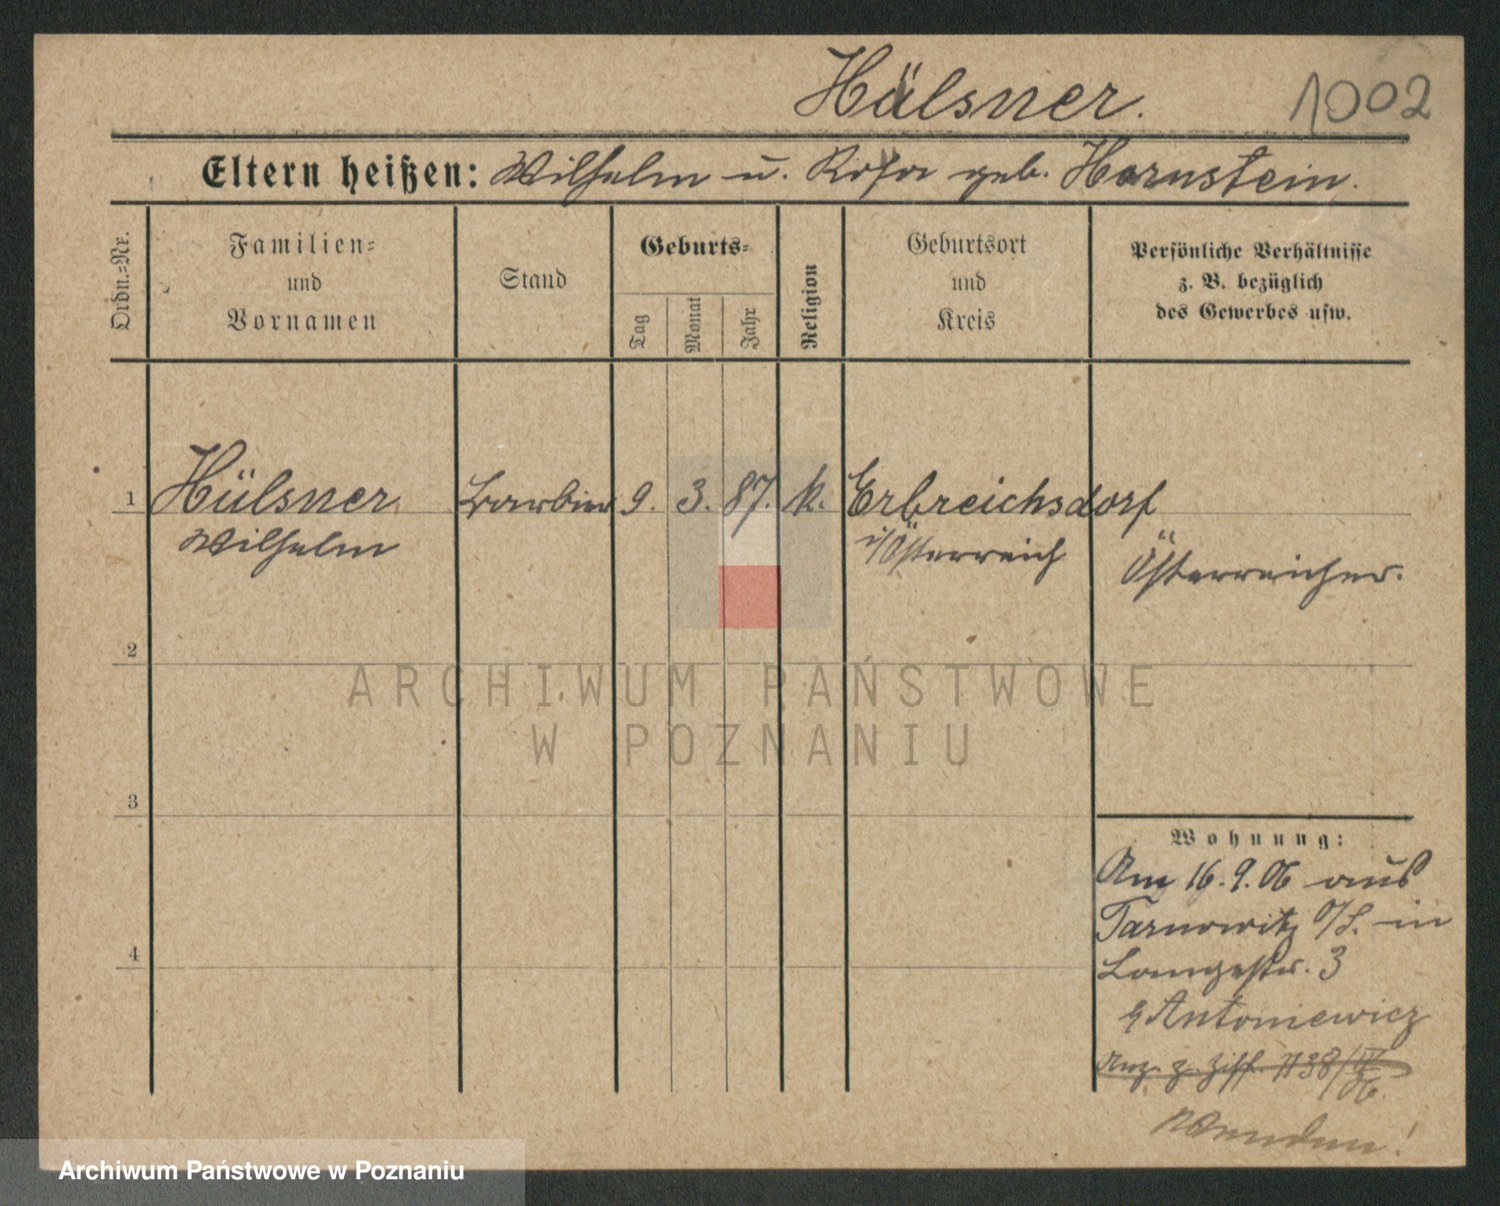 Hülsner.
1002
Eltern heißen: Wilhelm u. Rosa geb. Hornstein.
Ordn.=Nr.
Familien=
und
Vornamen
Stand
Geburts=
Tag
Monat
Jahr
Religion
Geburtsort
und
Kreis
Persönliche Verhältnisse
z. B. bezüglich
des Gewerbes usw.
1 Hülsner Barbier 9. 3. 87. k. Erbreichsdorf
Wilhelm i/Österreich Österreicher.
2
ARCHIWUM PAŃSTWOWE
W POZNANIU
3
Wohnung:
Am 16.9.06 aus
Tarnowitz O/S. in
Langestr. 3
4
b/ Antoniewicz
Anz. z. Ziff. 1138/
Wenden!
Archiwum Państwowe w Poznaniu